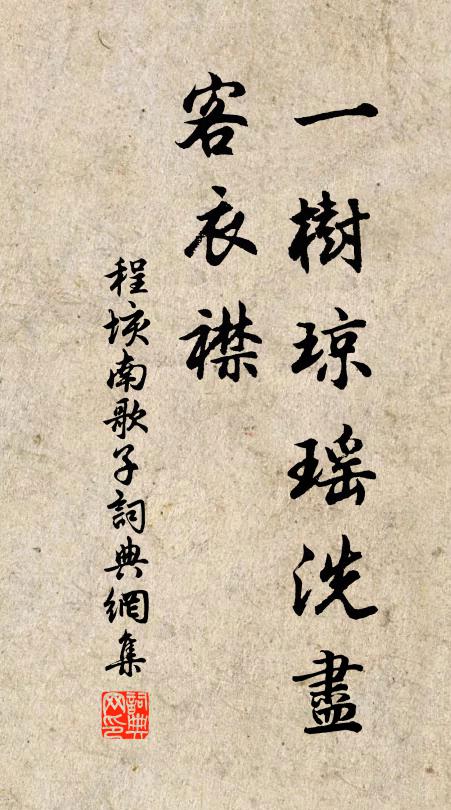 一樹琼瑶洗盡
客衣襟
程垓南歌子詞典網集
詞典网印